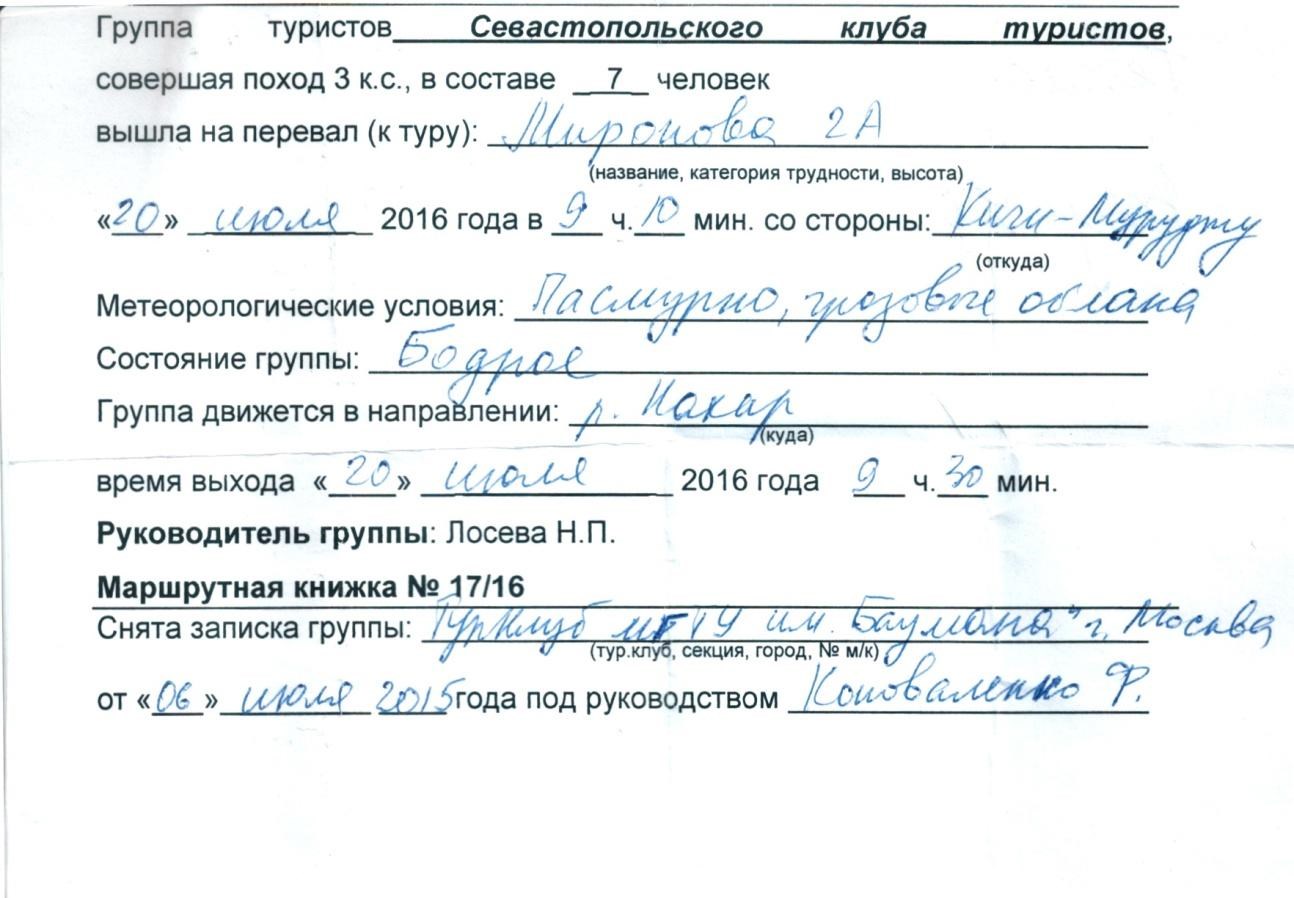 Группа туристов Севастопольского клуба туристов,
совершая поход 3 к.с., в составе 7 человек
вышла на перевал (к туру): Миронова 2А
(название, категория трудности, высота)
«20» июля 2016 года в 9 ч. 10 мин. со стороны: Кичи-Муруджу
(откуда)
Метеорологические условия: Пасмурно, грозовые облака
Состояние группы: Бодрое
Группа движется в направлении: р. Нахар
(куда)
время выхода «20» июля 2016 года 9 ч. 30 мин.
Руководитель группы: Лосева Н.П.
Маршрутная книжка № 17/16
Снята записка группы: Турклуб МГТУ им. Баумана" г. Москва
(тур.клуб, секция, город, № м/к)
от «06» июля 2015 года под руководством Коноваленко Ф.